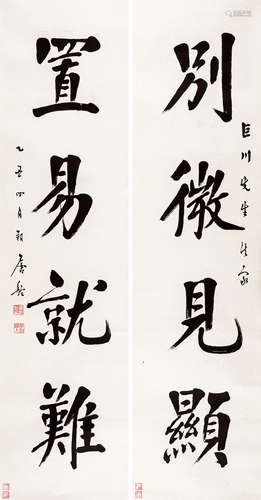 別微見顯
巨川先生法家
置易就難
乙丑四月